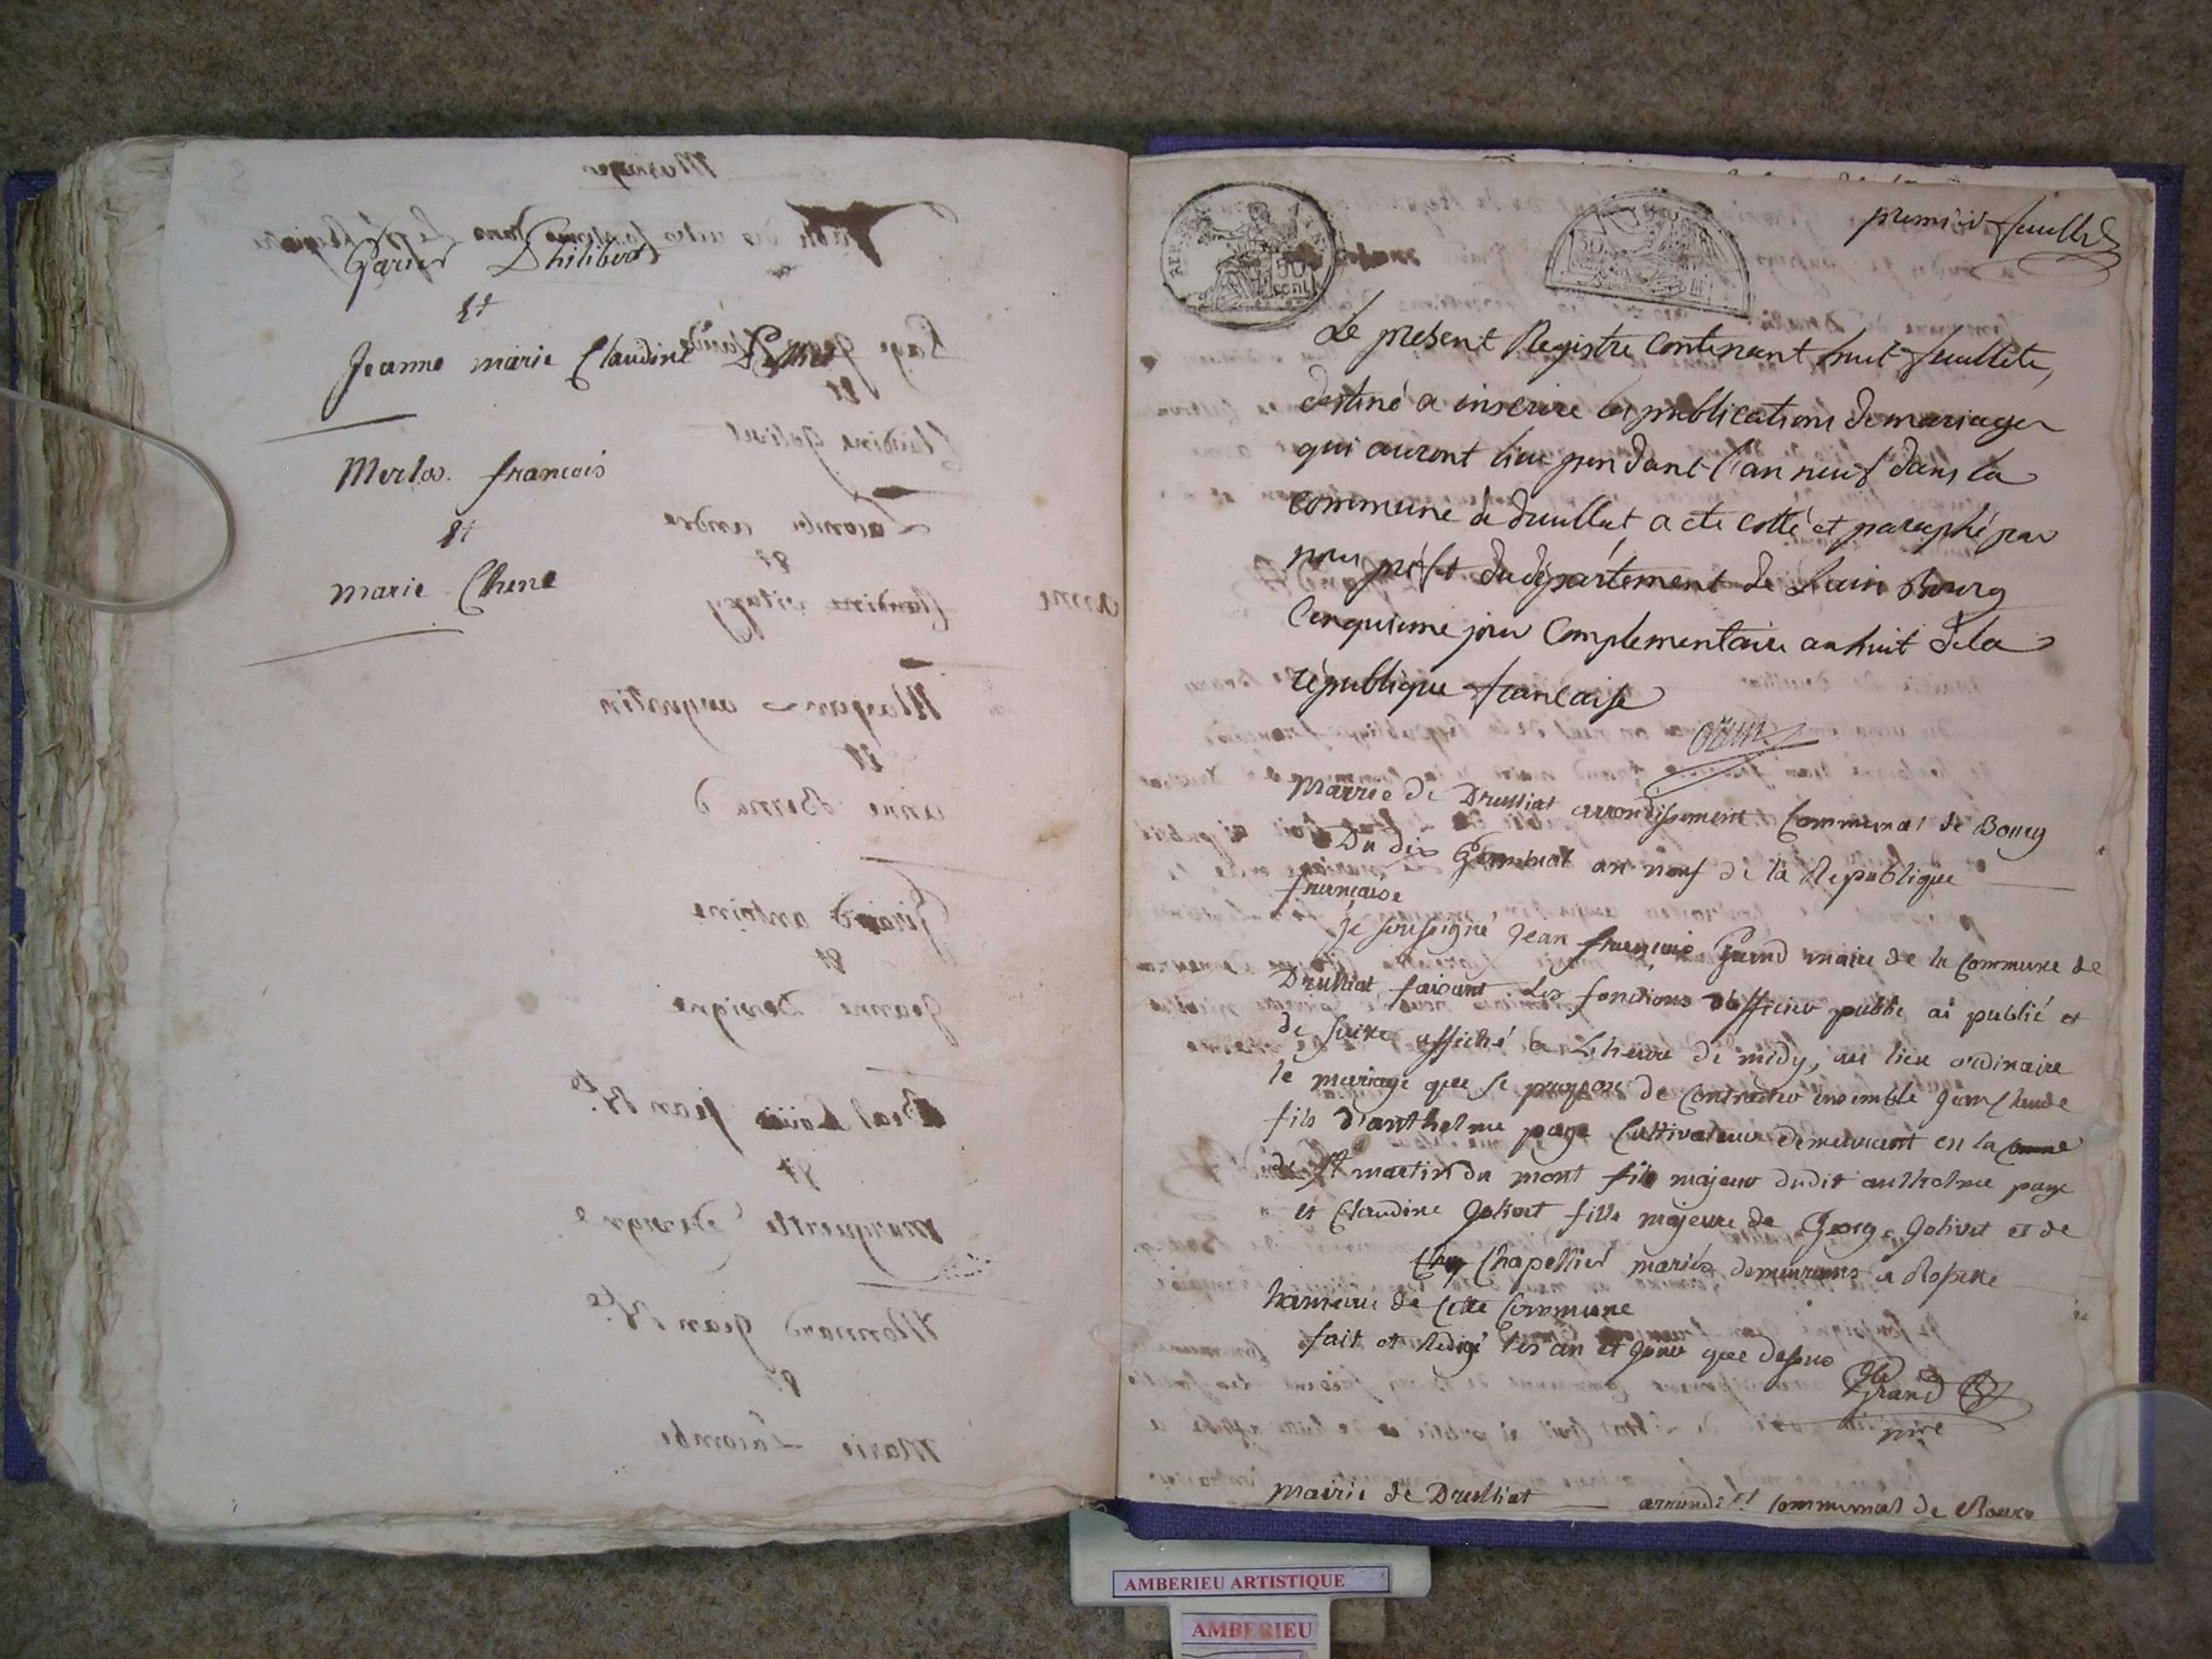 Parier Philibert
et
Jeanne marie Claudine
Merlos. francois
et
marie Chene
premier feuillet
50
cent
Le present Registre contenant huit feuillets,
destiné a inscrire les publications de mariages
qui auront lieu pendant l'an neuf dans la
commune de druillat, a ete cotté et paraphé par
nous préfet du département de Lain Bourg
Cinquieme jour Complementaire an huit de la
république francaise
mairie de Druilliat arrondissement Communal de Bourg
Du dix Germinal an neuf de la Republique
française
je soussigné jean françois Grand maire de la Commune de
Druilliat faisant les fonctions d'officier public ai publié et
de suitte affiché a L'heure de midy, au lieu ordinaire
le mariage que se propose de Contracter ensemble jean Claude
fils d'anthelme page Cultivateur demeurant en la Comne
de St martin du mont fils majeur dudit anthelme page
et Claudine Golivet fille majeure de George Golivet et de
Chapellier mariés demeurans a Rossette
hameau de Cette Commune
fait et Redigé les an et jour que dessus
Grand
mre
mairie de Druilliat arrondist Communal de Bourg
AMBERIEU ARTISTIQUE
AMBERIEU